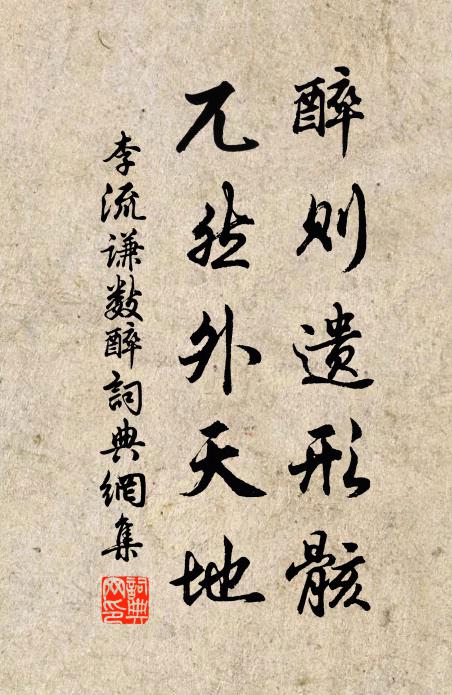 醉则遗形骸
兀然外天地
李流谦数醉詞典網集
詞典網印